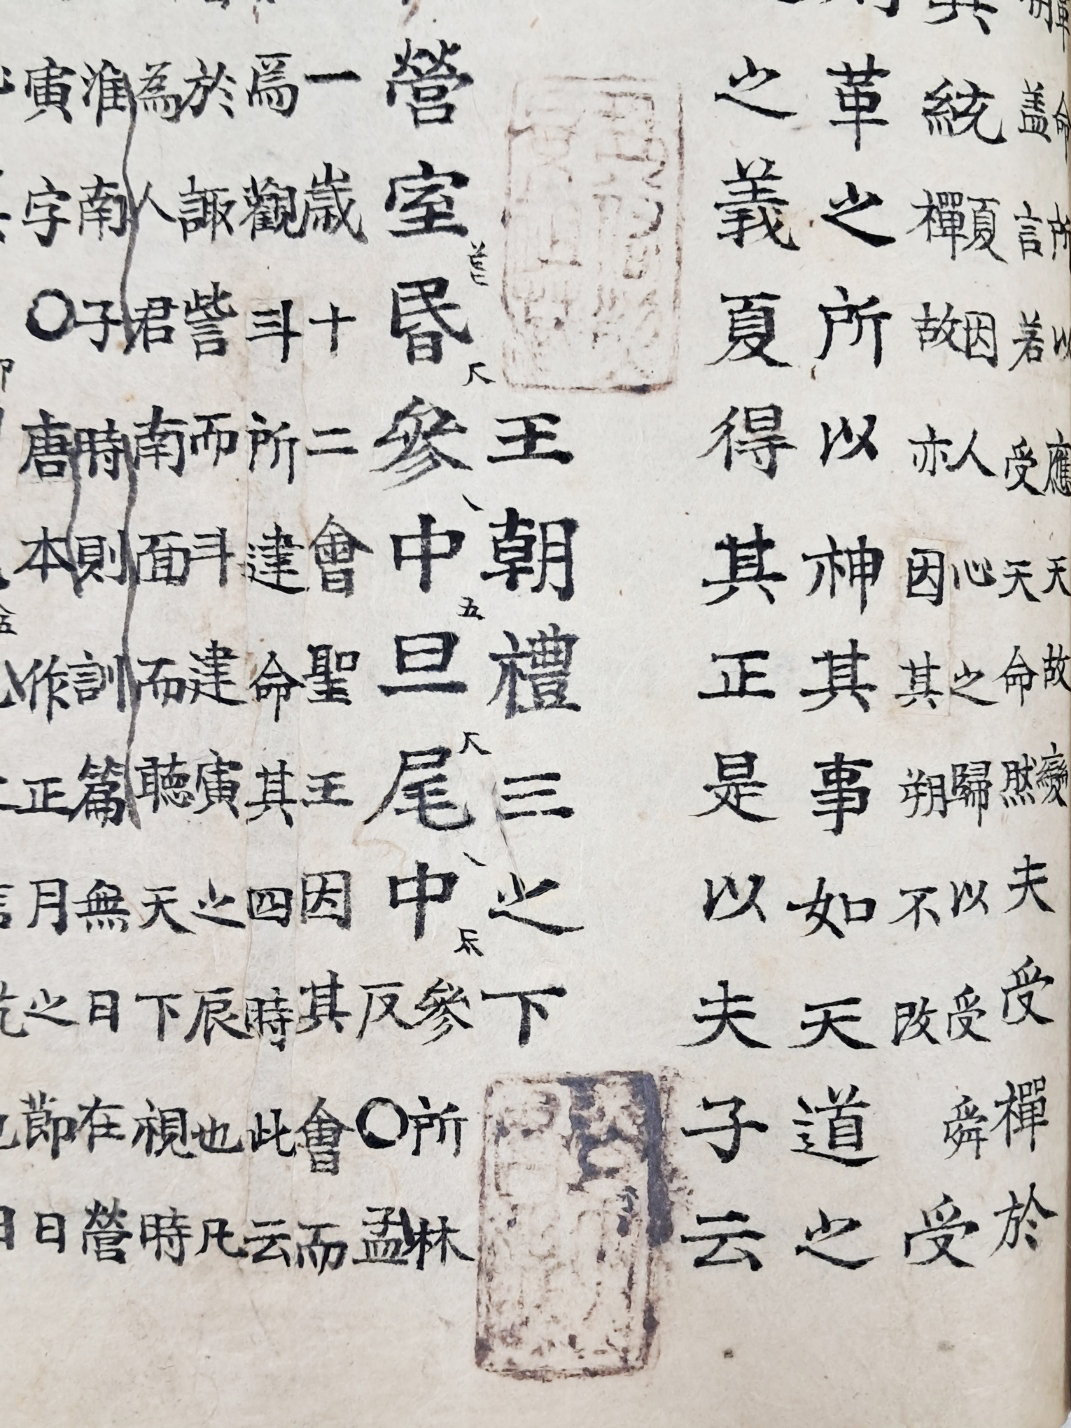 蓋言若受天命然夫受禪於
命所以應天故變
統禪故亦因其朔不改
夏因人心之歸以受舜
受
革之所以神其事如天道之
之義夏得其正是以夫子云
王朝禮三之下
營室昏參中旦尾中
參所林
反〇孟
一歲十二會聖王因其會而
爲觀斗所建命其四時此云
於諏訾而斗建寅之辰也凡
為人君南面而聽天下視時
淮南子時則訓篇無日在營
寅字〇唐本作正月之節日